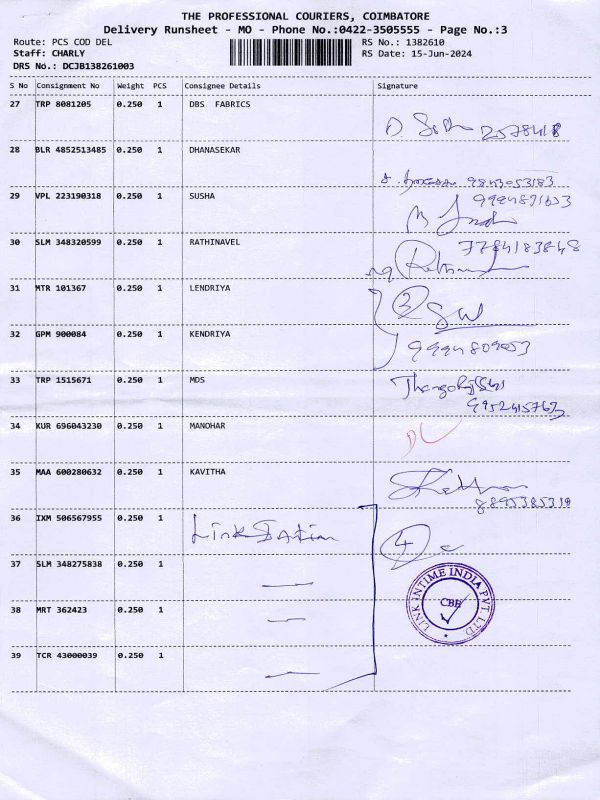 THE PROFESSIONAL COURIERS, COIMBATORE
Delivery Runsheet - MO - Phone No.:0422-3505555 - Page No.:3
Route: PCS COD DEL RS No.: 1382610
Staff: CHARLY RS Date: 15-Jun-2024
DRS No.: DCJB138261003
S No Consignment No Weight PCS Consignee Details Signature
27 TRP 8081205 0.250 1 DBS FABRICS
28 BLR 4852513485 0.250 1 DHANASEKAR
9843053183
29 VPL 223190318 0.250 1 SUSHA
30 SLM 348320599 0.250 1 RATHINAVEL
31 MTR 101367 0.250 1 LENDRIYA
3
32 GPM 900084 0.250 1 KENDRIYA
33 TRP 1515671 0.250 1 MDS
9952415763
34 KUR 696043230 0.250 1 MANOHAR
DL
35 MAA 600280632 0.250 1 KAVITHA
36 IXM 506567955 0.250 1 Link
4
37 SLM 348275838 0.250 1
LINK INTIME INDIA PVT. LTD
CBE
38 MRT 362423 0.250 1
39 TCR 43000039 0.250 1